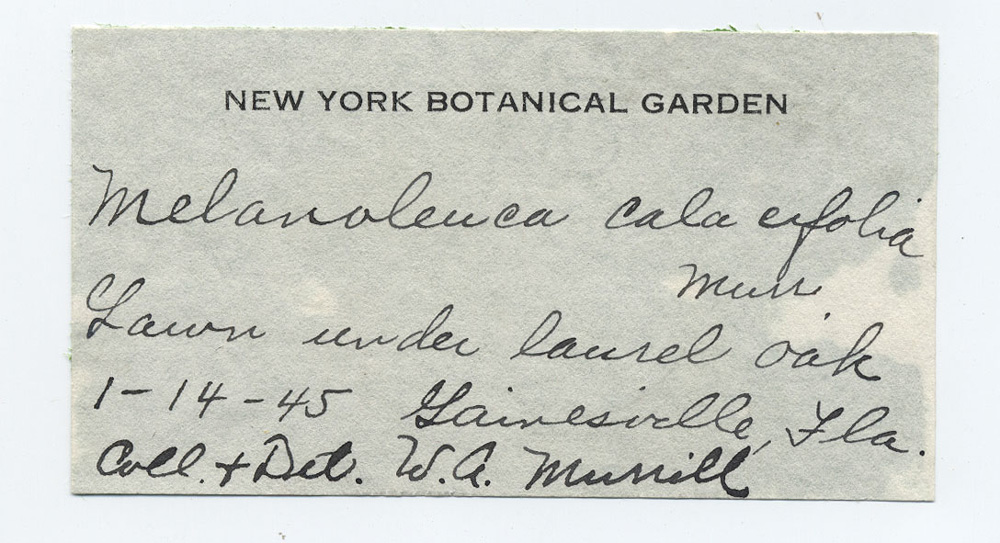 NEW YORK BOTANICAL GARDEN
Melanoleuca calaeifolia
Murr
Lawn under laurel oak
1-14-45 Gainesville, Fla.
Coll. + Det. W.A. Murrill